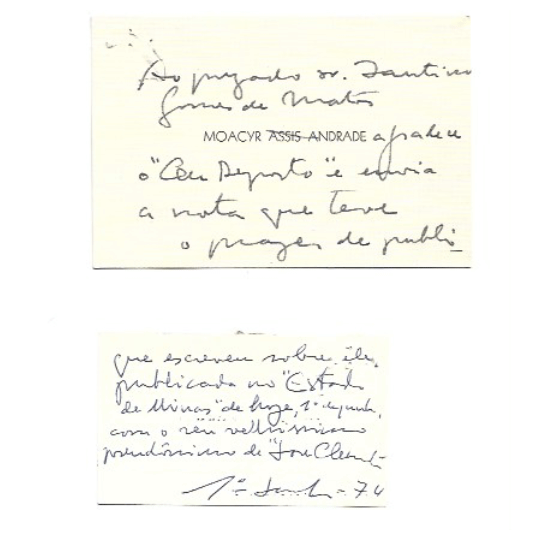 Ao prezado sr. Santino
Gomes de Matos
MOACYR ASSIS ANDRADE agradece
o "Céu Deposto" e envia
a nota que teve
o prazer de publi
que escreveu sobre êle,
publicada no "Estado
de Minas" de hoje, 1ª
com o seu velhíssimo
pseudônimo de "José Clemente
1º 74